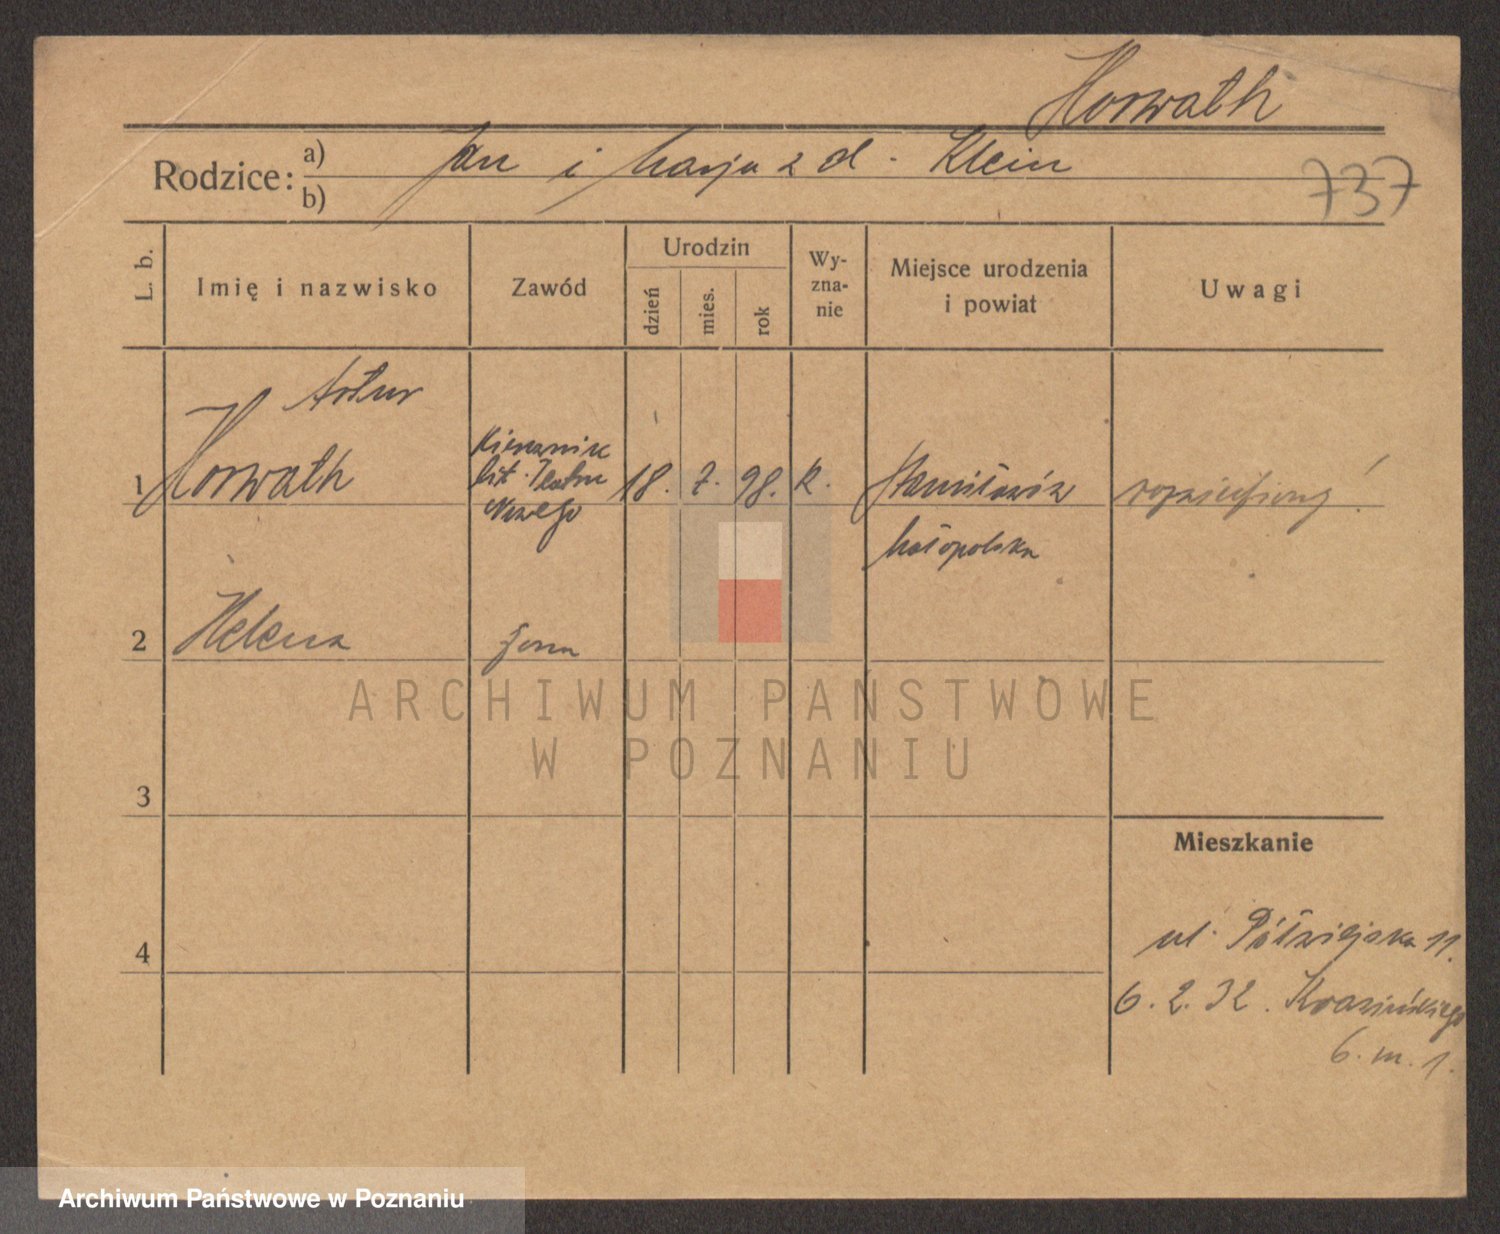 Horwath
Rodzice: a) Jan i Marja z d. Klein
b)
737
L. b.
Imię i nazwisko
Zawód
Urodzin
dzień
mies.
rok
Wy-
zna-
nie
Miejsce urodzenia
i powiat
Uwagi
Artur
1 Horwath
Kierownik
lit. Teatru
Nowego
18. 7. 98. R.
Stanisławów
Małopolska
2 Helena żona
ARCHIWUM PAŃSTWOWE
W POZNANIU
3
Mieszkanie
4
ul. Półwiejska 11.
6. 2. 32. Krasińskiego
6. m. 1.
Archiwum Państwowe w Poznaniu